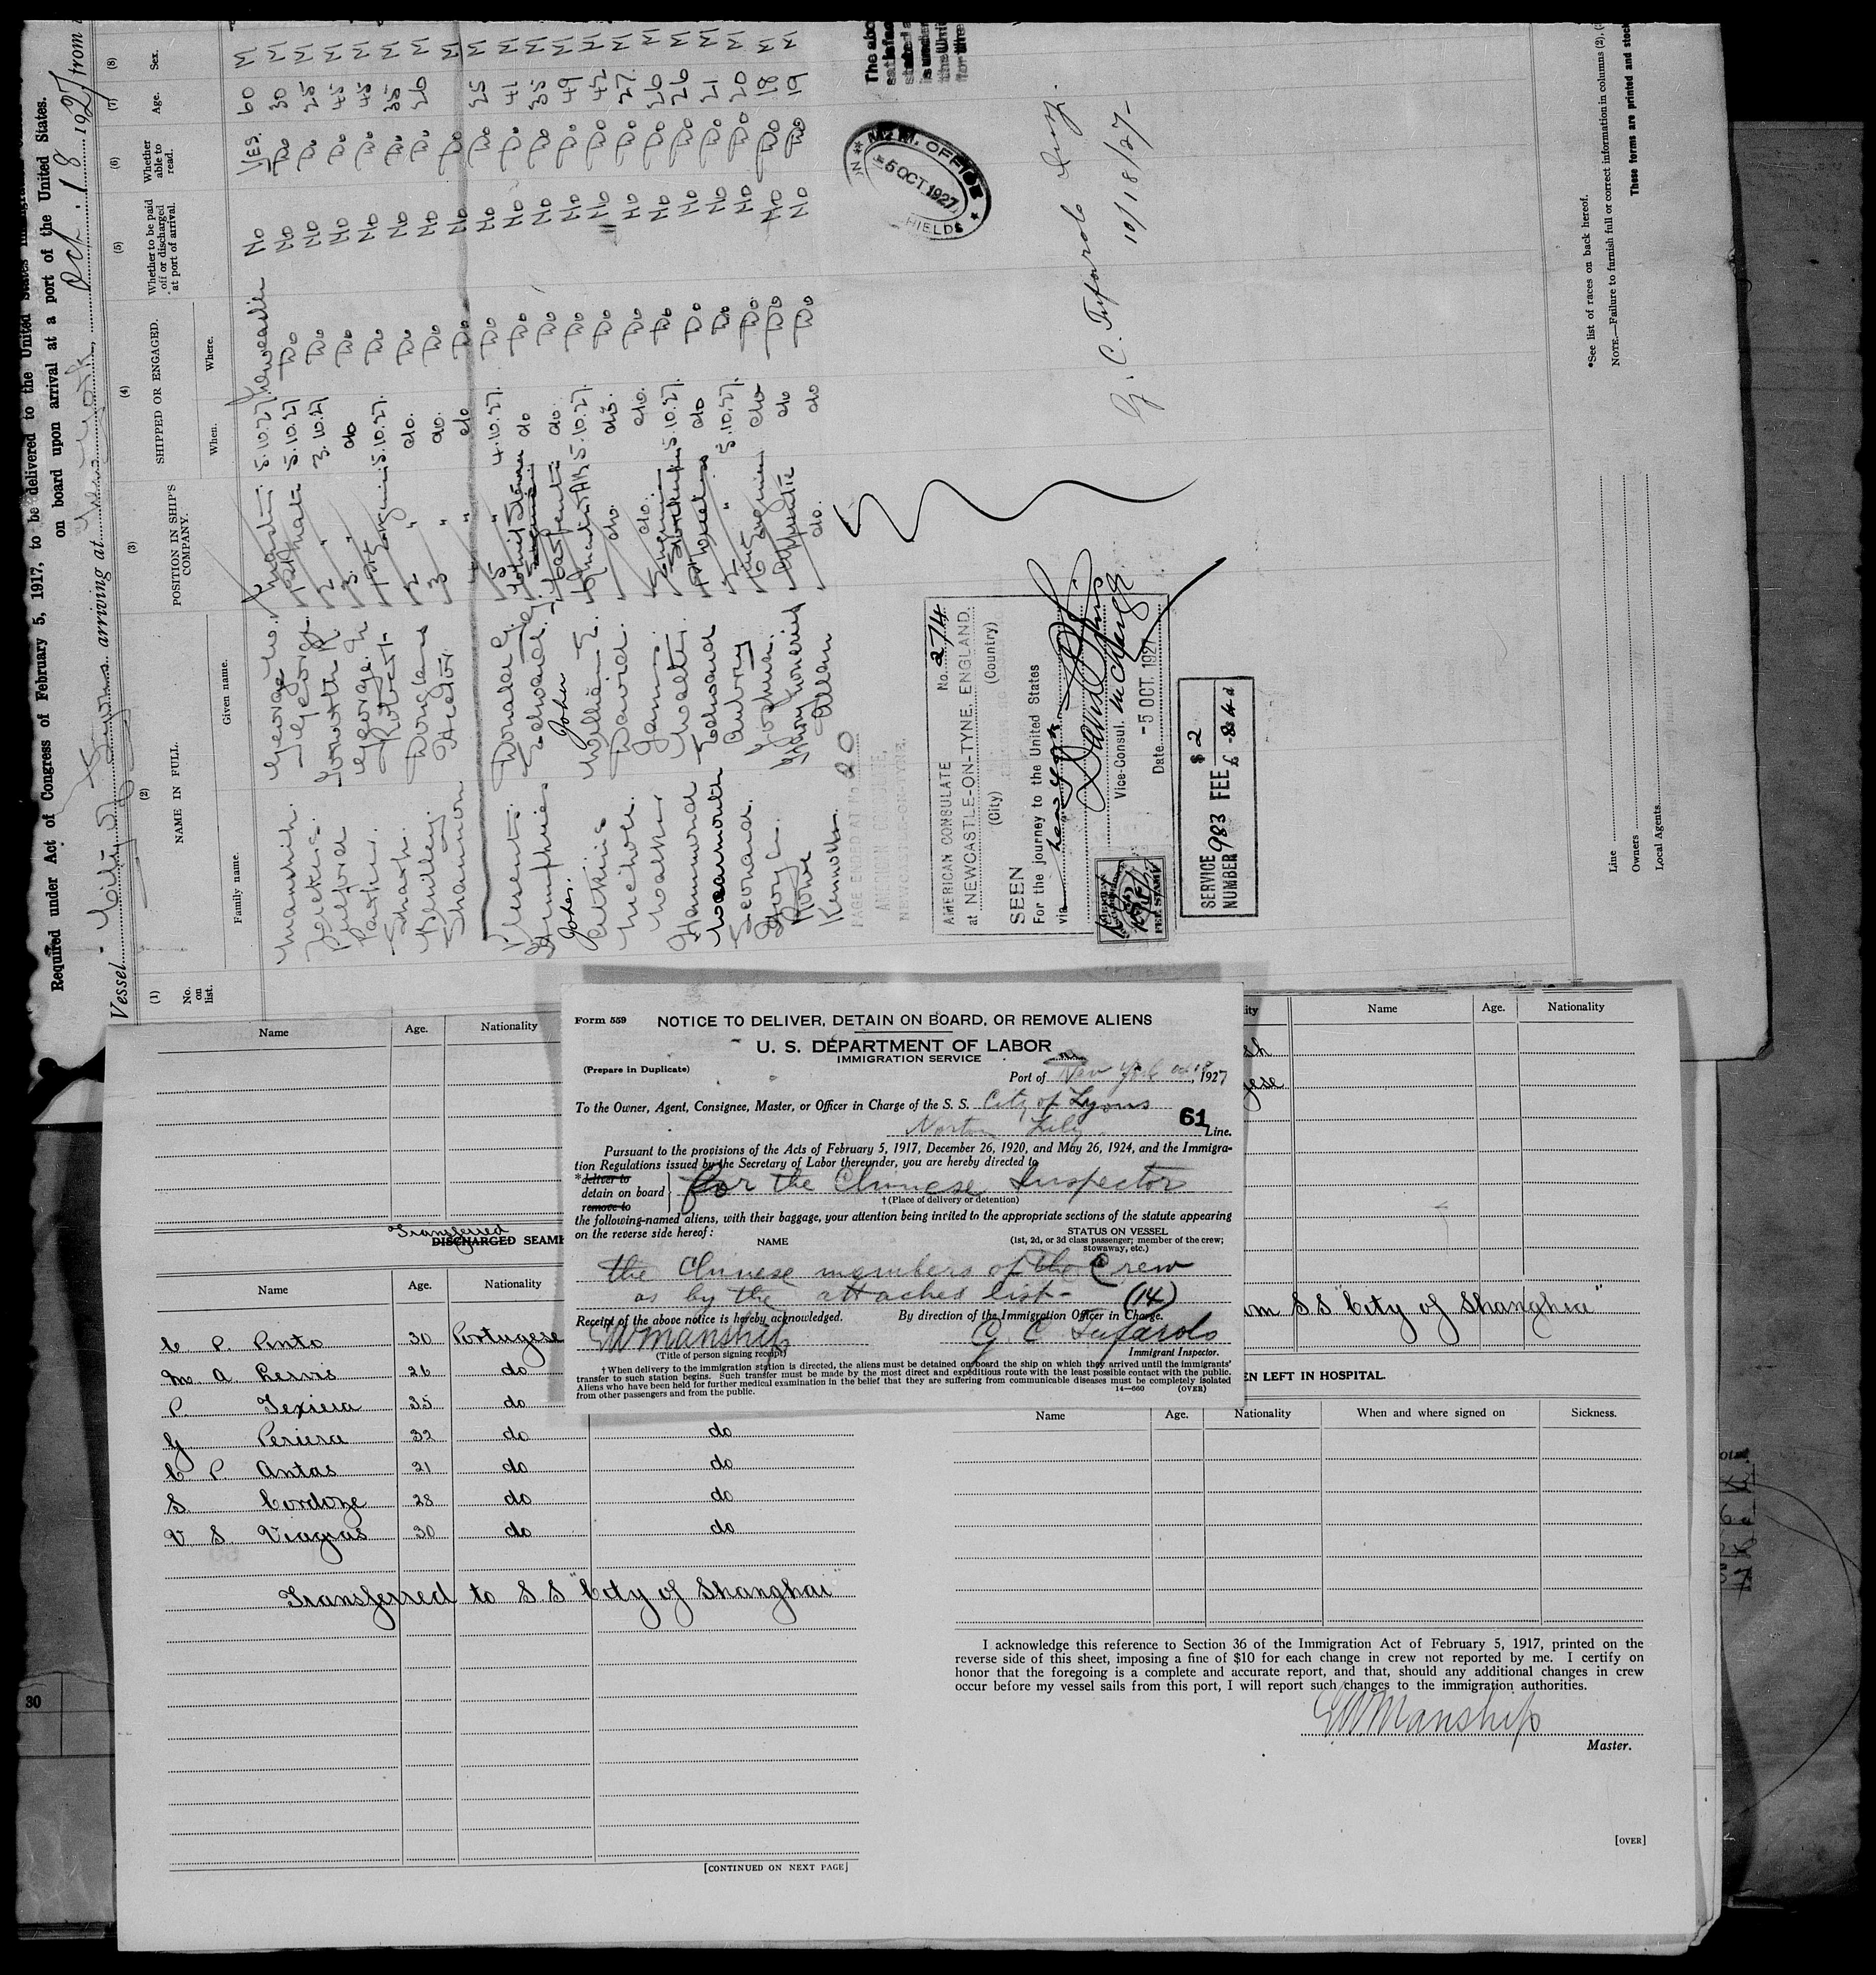 Required under Act of Congress of February 5, 1917, to be delivered to the United States
on board upon arrival at a port of the United States.
Vessel City of Lyons arriving at New York, Oct. 18 1927 from
(1) (2) (3) (4) (5) (6) (7) (8)
No. on list. NAME IN FULL. POSITION IN SHIP'S COMPANY. SHIPPED OR ENGAGED. Whether to be paid off or discharged at port of arrival. Whether able to read. Age. Sex.
Family name. Given name. When. Where.
Manship. George W. 5.10.27 No YES. 60 M
George 5.10.27 Do No Do 30 M
Pulford 2 " 3.10.27 Do No Do 25 M
George 3 " do Do No Do 45 M
Robert 5.10.27. Do No Do 45 M
Douglas 2 " do. Do No Do 35 M
Shannon Hector 3 " do. Do No Do 26 M
do Do No Do M
Donald G. 5 " 4.10.27. Do No Do 25 M
Humphries Edward. do Do No Do 41 M
John Carpenter do. Do No Do 35 M
William E. 5.10.27. Do No Do 49 M
Nichol. David. do. do. Do No Do 42 M
Walker James. do. do. Do No Do 27 M
Hammond Walter. 5.10.27. Do No Do 26 M
Wearmouth Edward do Do No Do 26 M
Leonard. Aubrey 2 " 5.10.27. Do No Do 21 M
do Do No Do 20 M
Rowe Apprentice do Do No Do 18 M
Allan do. do Do No Do 19 M
G. C. Tufarolo Insp.
10/18/27-
IMM. OFFICE
-5 OCT. 1927
HIELDS
AMERICAN CONSULATE No. 274
at NEWCASTLE-ON-TYNE, ENGLAND.
(City) (Country)
SEEN
For the journey to the United States
via New York
Vice-Consul.
Date -5 OCT. 1927
FEE STAMP
SERVICE NUMBER 983 FEE $2
*See list of races on back hereof.
NOTE.—Failure to furnish full or correct information in columns (2), (
These forms are printed and stock
Line
Owners
Local Agents
Form 559 NOTICE TO DELIVER, DETAIN ON BOARD, OR REMOVE ALIENS
U. S. DEPARTMENT OF LABOR
IMMIGRATION SERVICE
(Prepare in Duplicate)
Port of New York Oct 18, 1927
To the Owner, Agent, Consignee, Master, or Officer in Charge of the S. S. City of Lyons
Norton Lily 61 Line.
Pursuant to the provisions of the Acts of February 5, 1917, December 26, 1920, and May 26, 1924, and the Immigra-
tion Regulations issued by the Secretary of Labor thereunder, you are hereby directed to
*deliver to
detain on board for the Chinese Inspector
remove to
† (Place of delivery or detention)
the following-named aliens, with their baggage, your attention being invited to the appropriate sections of the statute appearing
on the reverse side hereof:
NAME STATUS ON VESSEL
(1st, 2d, or 3d class passenger; member of the crew; stowaway, etc.)
the Chinese members of the Crew
as by the attached list- (14)
Receipt of the above notice is hereby acknowledged. By direction of the Immigration Officer in Charge.
GWManship G C Tufarolo
(Title of person signing receipt) Immigrant Inspector.
†When delivery to the immigration station is directed, the aliens must be detained on board the ship on which they arrived until the immigrants'
transfer to such station begins. Such transfer must be made by the most direct and expeditious route with the least possible contact with the public.
Aliens who have been held for further medical examination in the belief that they are suffering from communicable diseases must be completely isolated
from other passengers and from the public. 14—660 (OVER)
Name Age. Nationality
Transferred
DISCHARGED SEAME
Name Age. Nationality
C P. Pinto 30 Portugese
M. A. Pervis 26 do
P. Texiera 35 do
G Periera 32 do do
C P. Antas 21 do do
S Cordoze 28 do do
V S. Viagas 30 do do
Transferred to S.S "City of Shanghai"
[CONTINUED ON NEXT PAGE]
ity Name Age. Nationality
sh
gese
om S.S "City of Shanghai"
EN LEFT IN HOSPITAL.
Name Age. Nationality When and where signed on Sickness.
I acknowledge this reference to Section 36 of the Immigration Act of February 5, 1917, printed on the
reverse side of this sheet, imposing a fine of $10 for each change in crew not reported by me. I certify on
honor that the foregoing is a complete and accurate report, and that, should any additional changes in crew
occur before my vessel sails from this port, I will report such changes to the immigration authorities.
GWManship
Master.
[OVER]
30